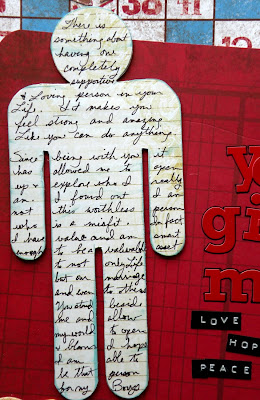 There is
something about
having one
completely
supportive
& Loving person in your
Life. It makes you
feel strong and amazing
Like you can do anything.
Since being with you it
has allowed me to open
up & explore who I really
am I found out I am
not this worthless person
who is a misfit. In fact
I have value and am smart
enough to be a valuable asset
to not only life
but our marriage
and even to those
You stand beside
me and allow
my world to open
& bloom I hope
I am able to
be that person
for my Boys
LOVE
HOP
PEACE